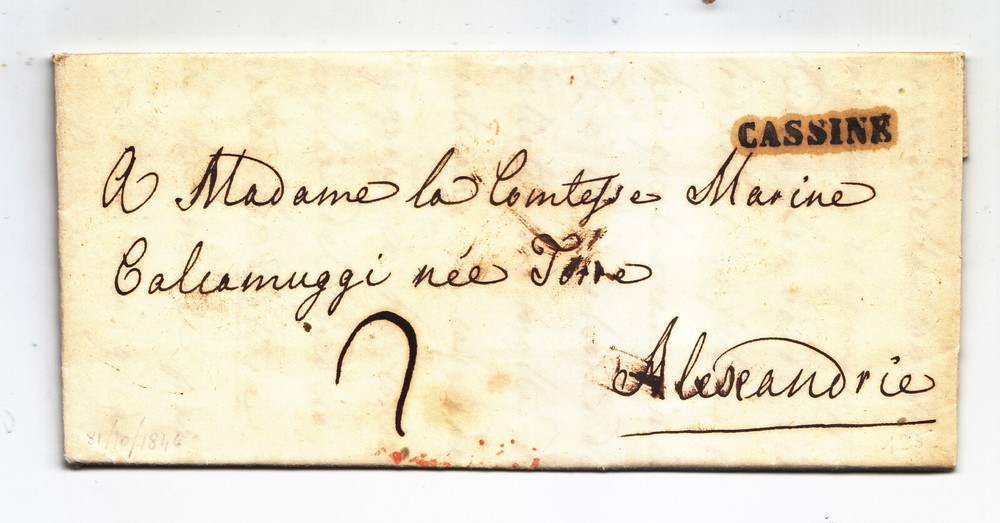 CASSINE
A Madame la Comtesse Marine
Calcamuggi née Torre
2
Alexandrie
31/10/1846